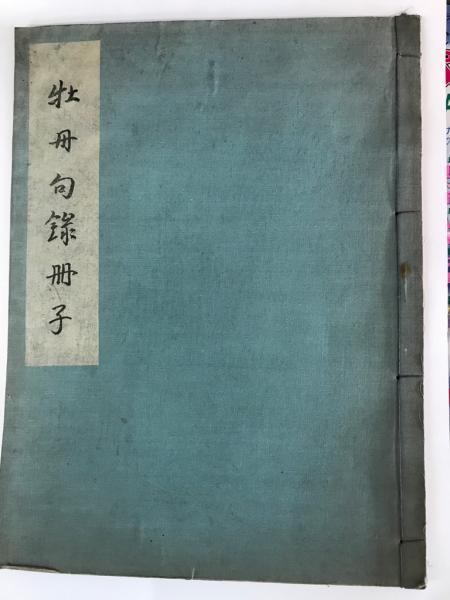 牡丹句録冊子